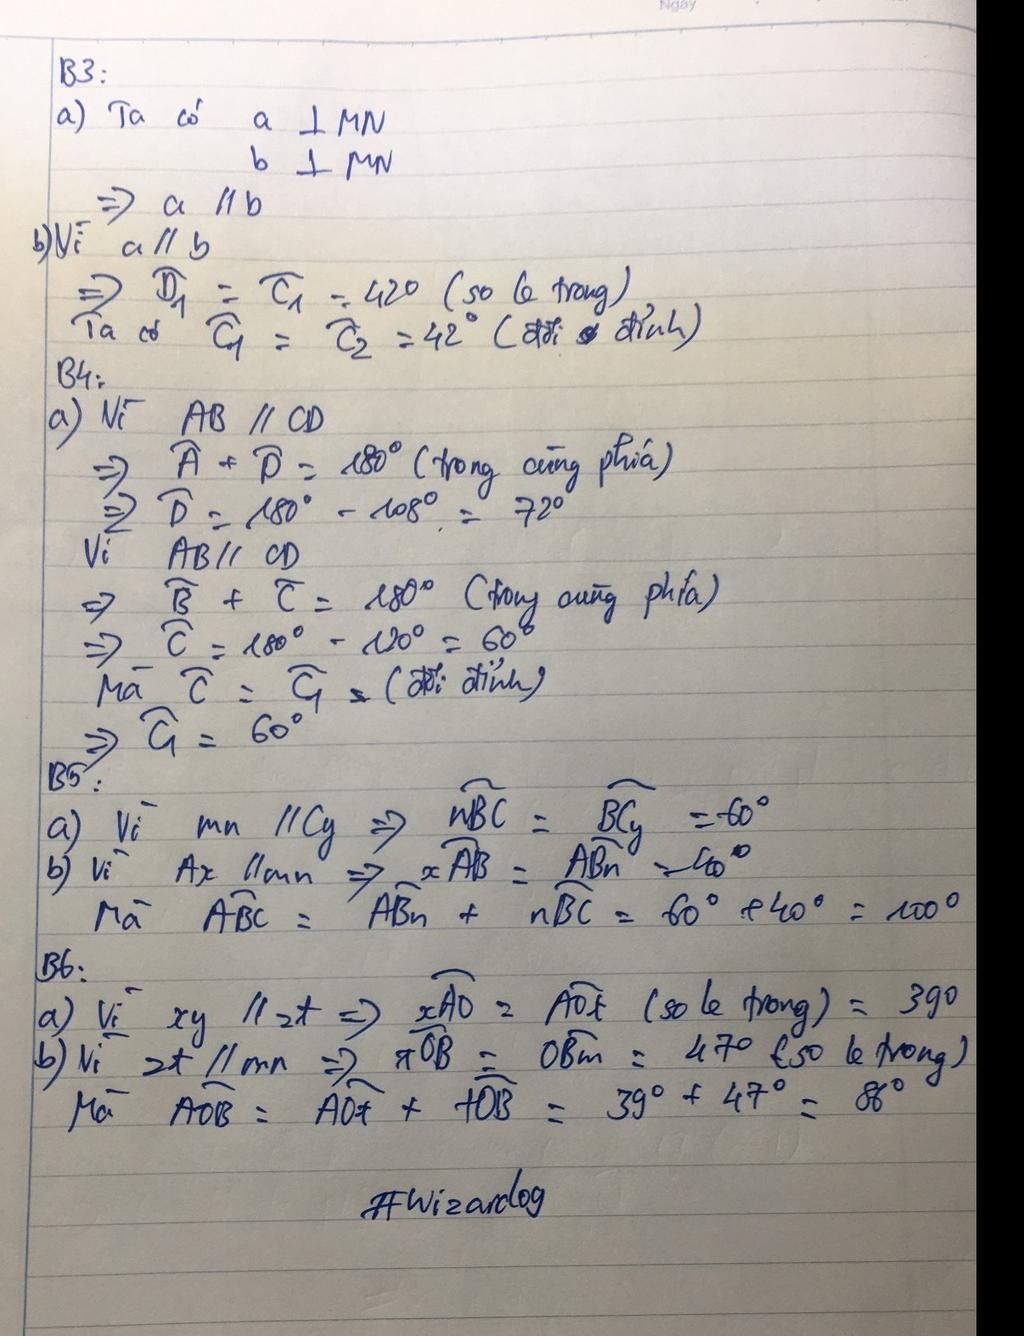 Ngày
B3:
a) Ta có a ⊥ MN
b ⊥ MN
=> a // b
b) Vì a // b
=> D̂₁ = Ĉ₁ = 42° (so le trong)
Ta có Ĉ₁ = Ĉ₂ = 42° (đối đỉnh)
B4:
a) Vì AB // CD
=> Â + D̂ = 180° (trong cùng phía)
=> D̂ = 180° - 108° = 72°
Vì AB // CD
=> B̂ + Ĉ = 180° (trong cùng phía)
=> Ĉ = 180° - 120° = 60°
Mà Ĉ = Ĉ₁ (đối đỉnh)
=> Ĉ₁ = 60°
B5:
a) Vì mn // Cy => nB̂C = BĈy = 60°
b) Vì Ax // mn => xÂB = AB̂n = 40°
Mà AB̂C = AB̂n + nB̂C = 60° + 40° = 100°
B6:
a) Vì xy // zt => xÂO = AÔt (so le trong) = 39°
b) Vì zt // mn => tÔB = OB̂m = 47° (so le trong)
Mà AÔB = AÔt + tÔB = 39° + 47° = 86°
#Wizardog